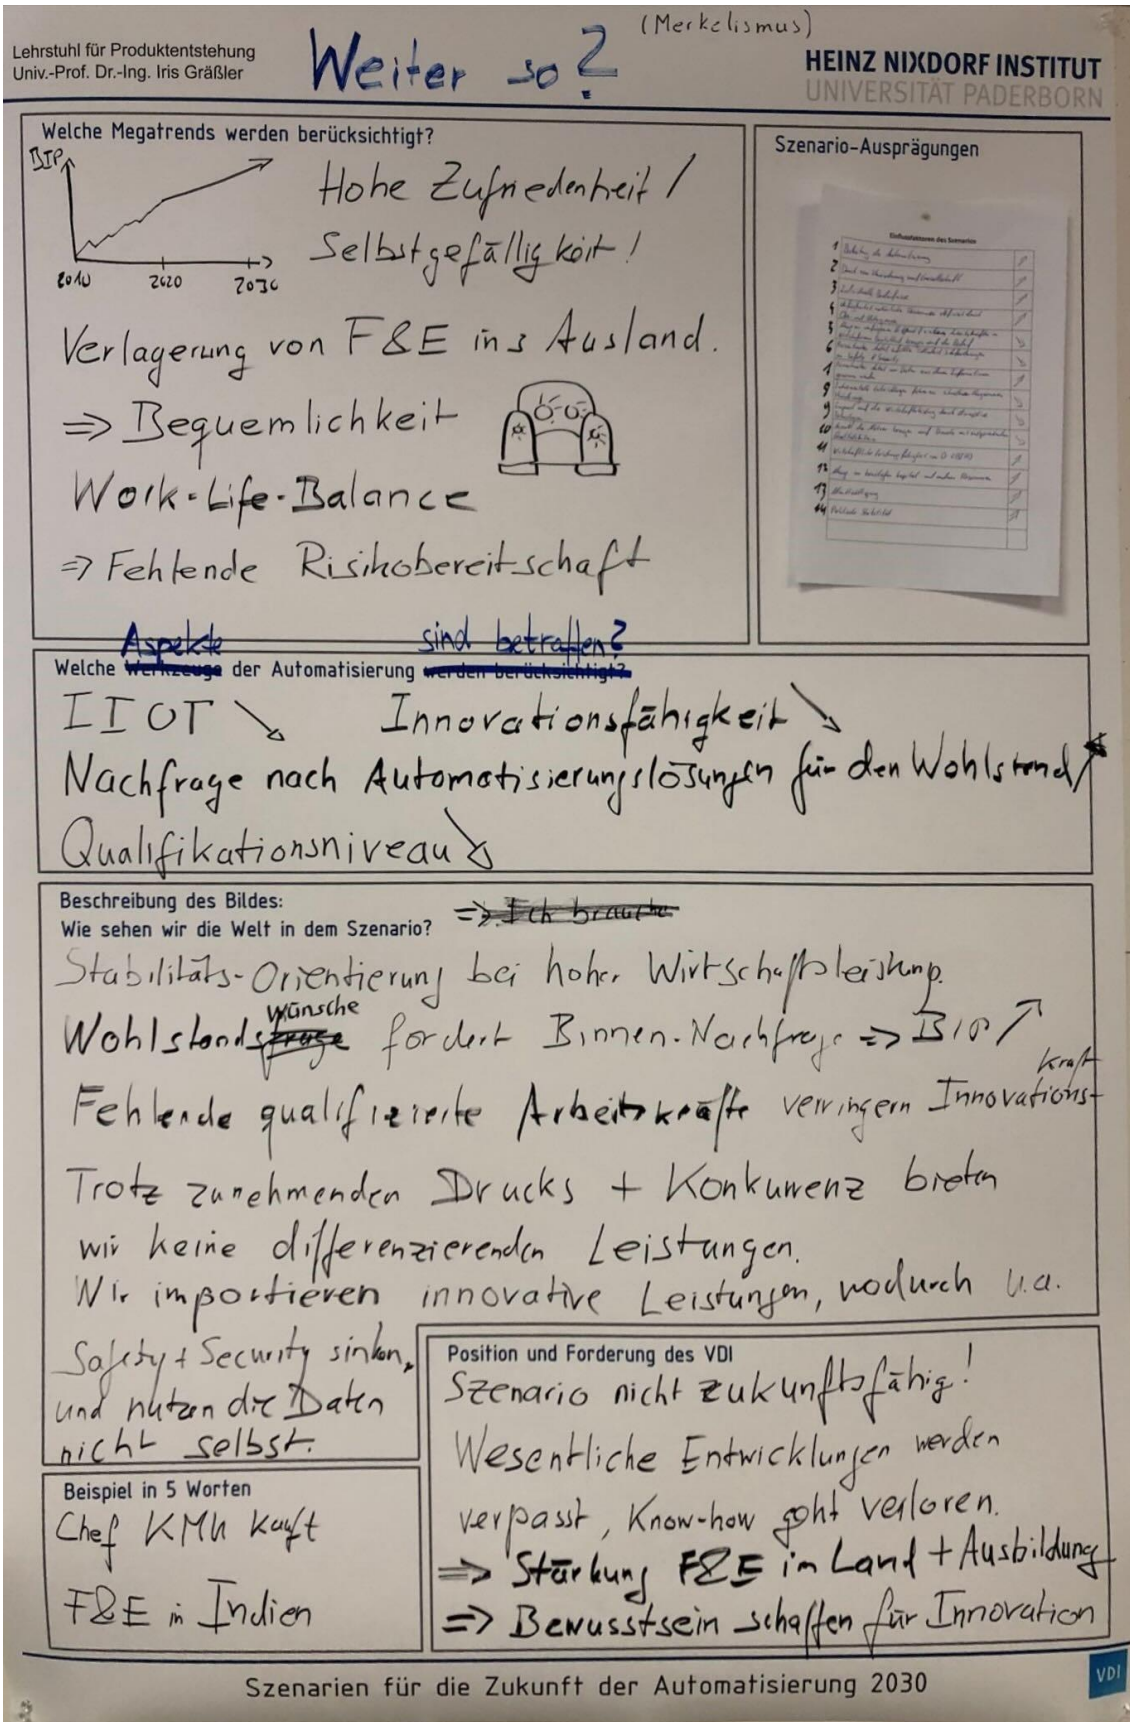 (Merkelismus)
Lehrstuhl für Produktentstehung
Univ.-Prof. Dr.-Ing. Iris Gräßler
Weiter so?
HEINZ NIXDORF INSTITUT
UNIVERSITÄT PADERBORN
Welche Megatrends werden berücksichtigt?
BIP
2010 2020 2030
Hohe Zufriedenheit /
Selbstgefälligkeit!
Verlagerung von F&E ins Ausland.
=> Bequemlichkeit
Work-Life-Balance
=> Fehlende Risikobereitschaft
Szenario-Ausprägungen
Einflussfaktoren des Szenarios
1
2
3
4
5
6
9
10
11
12
13
14
Aspekte sind betroffen?
Welche Werkzeuge der Automatisierung werden berücksichtigt?
IIOT ↘ Innovationsfähigkeit ↘
Nachfrage nach Automatisierungslösungen für den Wohlstand ↗
Qualifikationsniveau ↘
Beschreibung des Bildes:
Wie sehen wir die Welt in dem Szenario?
=> Ich brauche
Stabilitäts-Orientierung bei hoher Wirtschaftsleistung.
Wünsche
Wohlstands fordert Binnen-Nachfrage => BIP ↗
Kraft
Fehlende qualifizierte Arbeitskräfte verringern Innovations-
Trotz zunehmenden Drucks + Konkurrenz bieten
wir keine differenzierenden Leistungen.
Wir importieren innovative Leistungen, wodurch u.a.
Safety + Security sinken,
und nutzen die Daten
nicht selbst.
Beispiel in 5 Worten
Chef KMU kauft
F&E in Indien
Position und Forderung des VDI
Szenario nicht zukunftsfähig!
Wesentliche Entwicklungen werden
verpasst, Know-how geht verloren.
=> Stärkung F&E im Land + Ausbildung
=> Bewusstsein schaffen für Innovation
Szenarien für die Zukunft der Automatisierung 2030
VDI